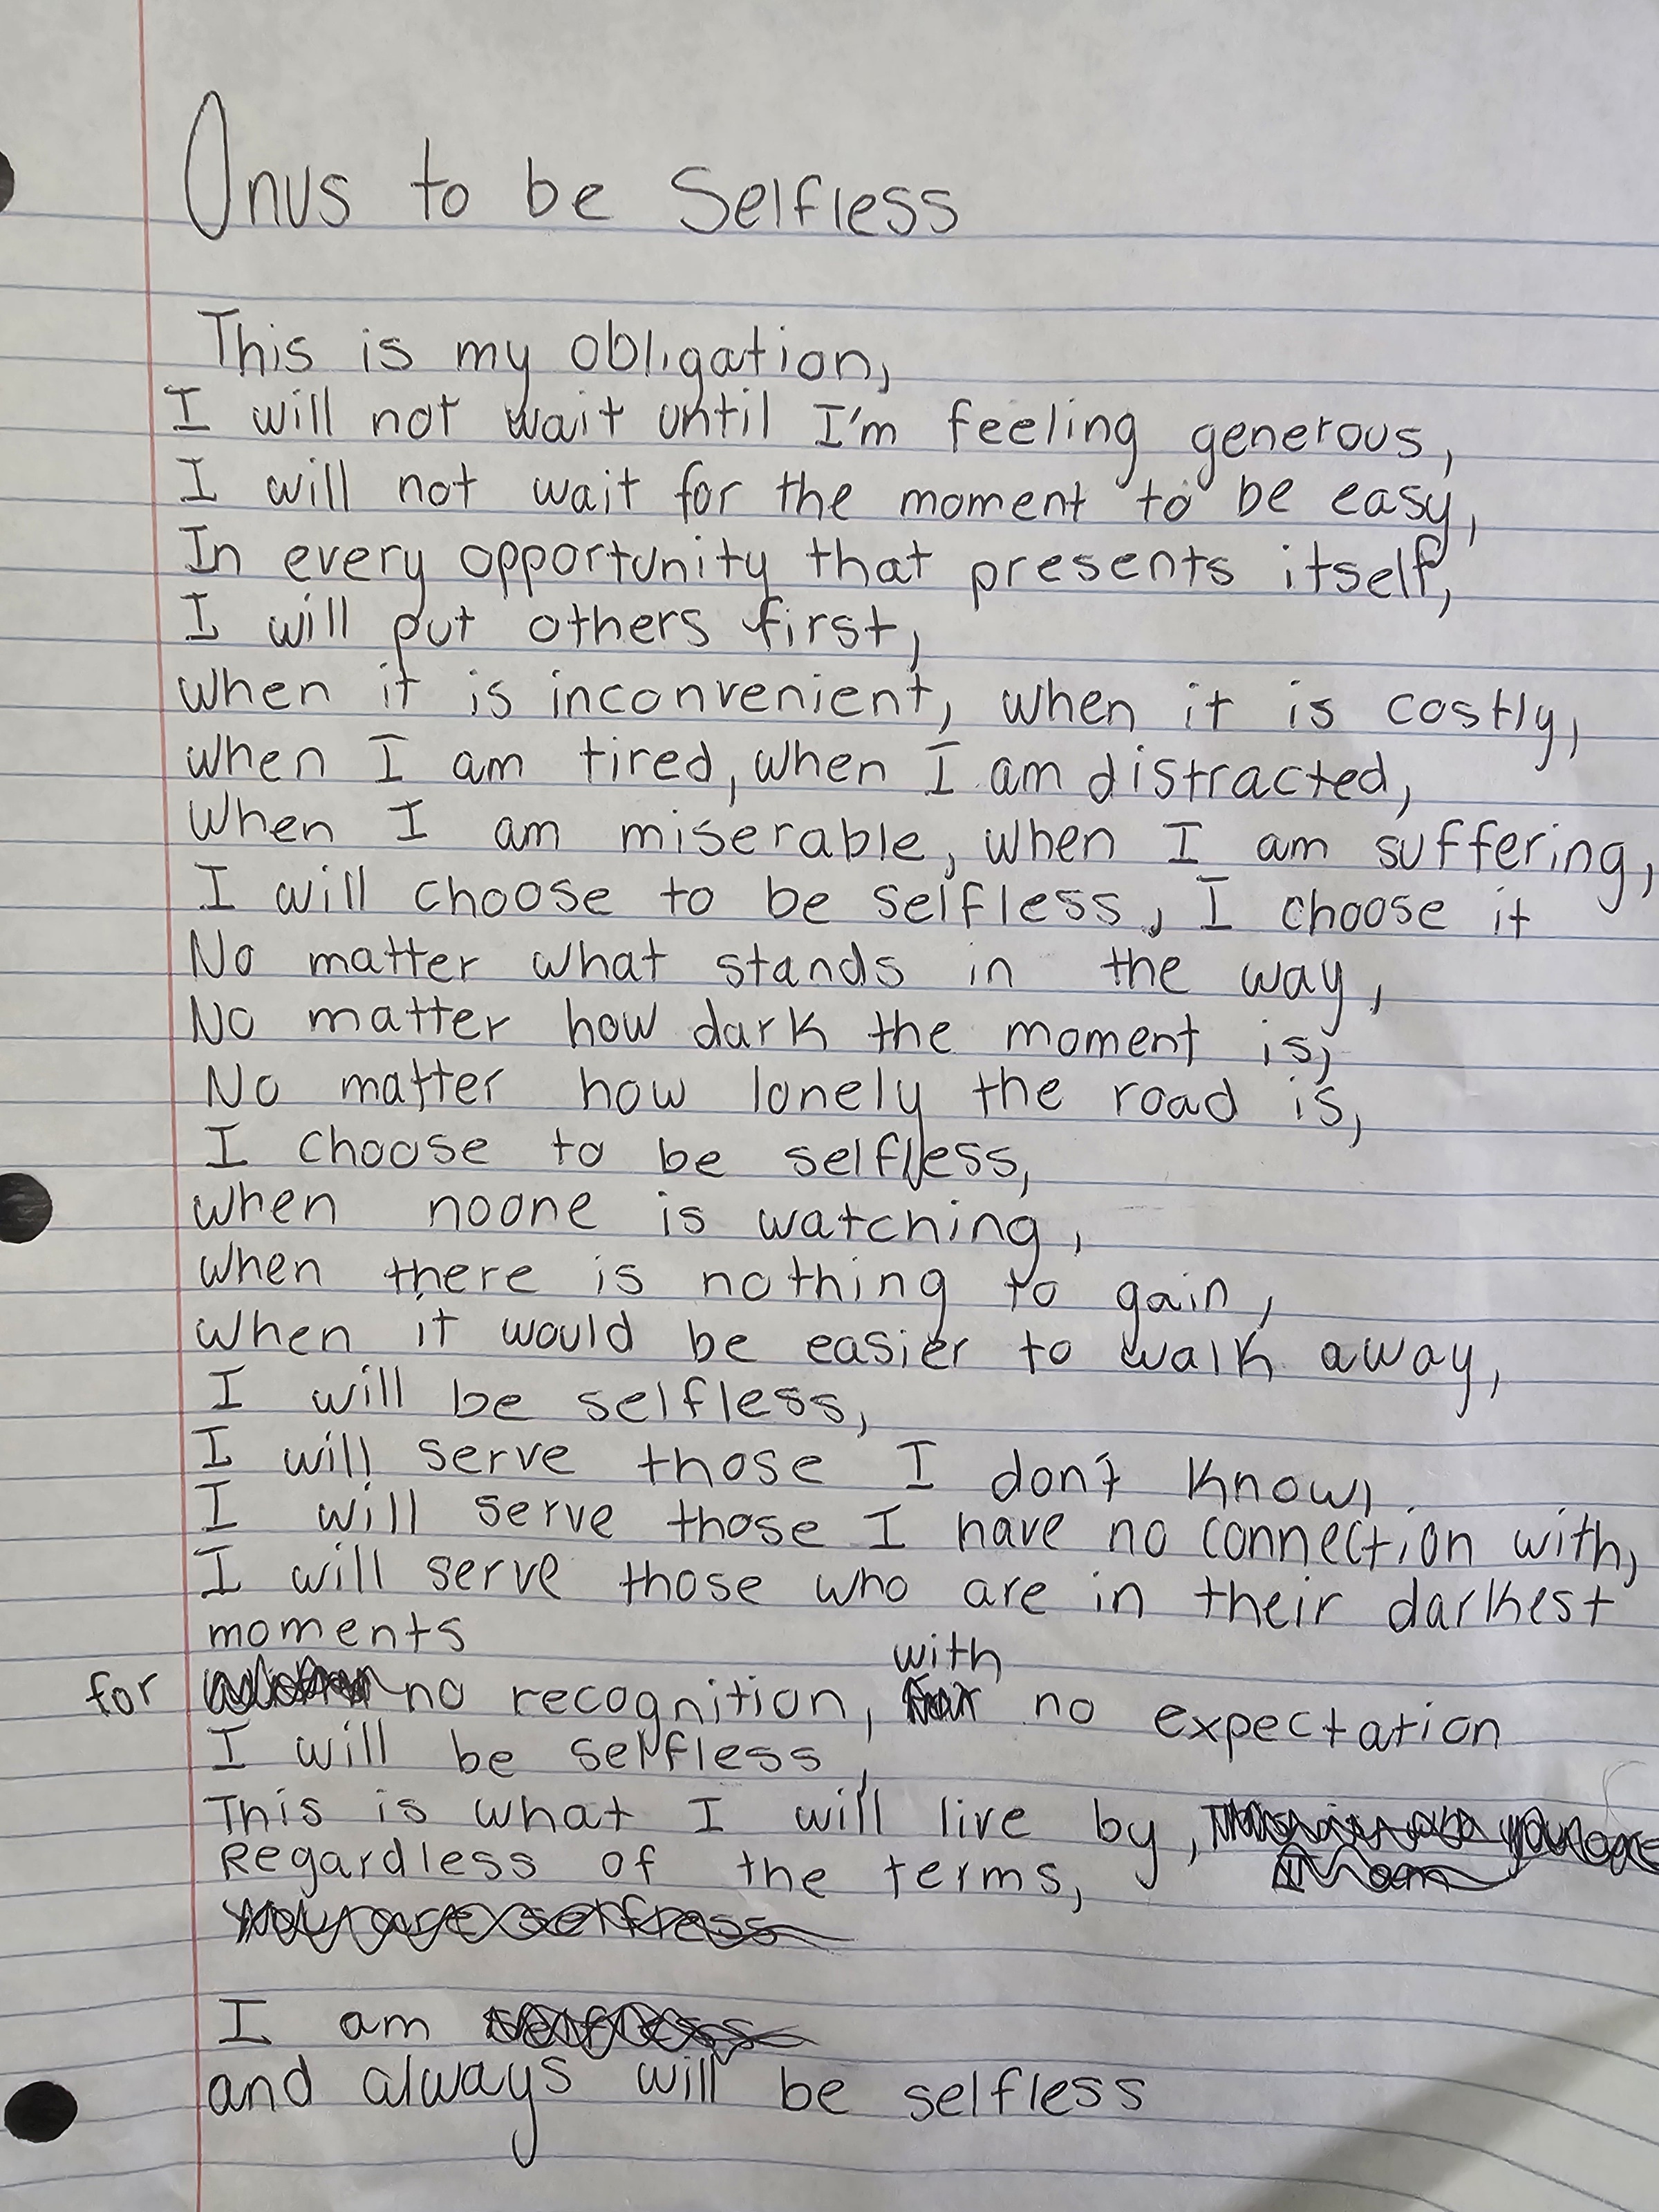 Onus to be Selfless
This is my obligation,
I will not wait until I'm feeling generous,
I will not wait for the moment to be easy,
In every opportunity that presents itself,
I will put others first,
when it is inconvenient, when it is costly,
when I am tired, when I am distracted,
When I am miserable, when I am suffering,
I will choose to be selfless, I choose it
No matter what stands in the way,
No matter how dark the moment is,
No matter how lonely the road is,
I choose to be selfless,
when noone is watching,
when there is nothing to gain,
when it would be easier to walk away,
I will be selfless,
I will serve those I don't know,
I will serve those I have no connection with,
I will serve those who are in their darkest
moments
with
for no recognition, no expectation
I will be selfless,
This is what I will live by,
Regardless of the terms,
I am
and always will be selfless